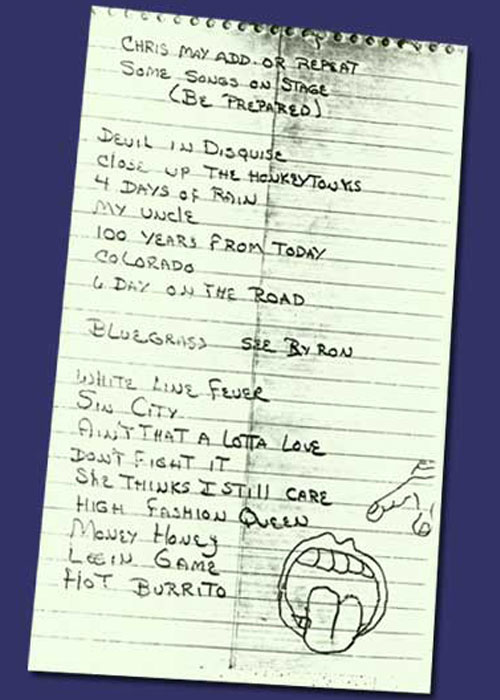 CHRIS MAY ADD OR REPEAT
SOME SONGS ON STAGE
(BE PREPARED)
DEVIL IN DISQUISE
CLOSE UP THE HONKEYTONKS
4 DAYS OF RAIN
MY UNCLE
100 YEARS FROM TODAY
COLORADO
6 DAY ON THE ROAD
BLUEGRASS SEE BYRON
WHITE LINE FEVER
SIN CITY
AIN'T THAT A LOTTA LOVE
DON'T FIGHT IT
SHE THINKS I STILL CARE
HIGH FASHION QUEEN
MONEY HONEY
LOSIN GAME
HOT BURRITO